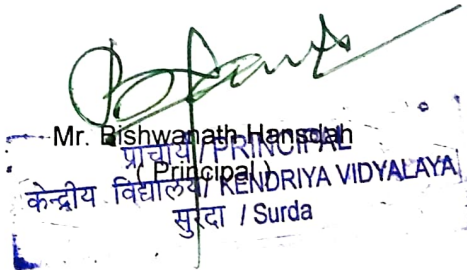 Mr. Bishwanath Hansdah
प्राचार्य / PRINCIPAL
( Principal )
केन्द्रीय विद्यालय / KENDRIYA VIDYALAYA
सुरदा / Surda